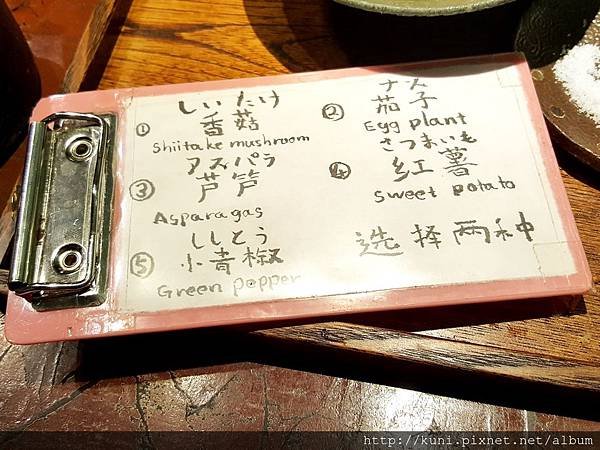 ①
しいたけ
香菇
Shiitake mushroom
②
ナス
茄子
Egg plant
③
アスパラ
芦笋
Asparagas
④
さつまいも
红薯
Sweet potato
⑤
ししとう
小青椒
Green pepper
选择两种
http://kuni.pixnet.net/album